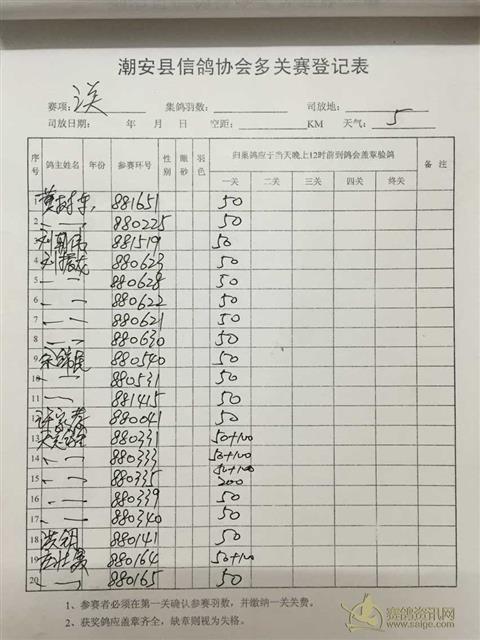 潮安县信鸽协会多关赛登记表
赛项: 集鸽羽数: 司放地:
司放日期: 年 月 日 空距: KM 天气: 5
序号 鸽主姓名 年份 参赛环号 性别 眼砂 羽色 归巢鸽应于当天晚上12时前到鸽会盖章验鸽 备注
一关 二关 三关 四关 终关
881651 50
2 880225 50
3 881519 50
4 880623 50
5 880628 50
6 880622 50
7 880621 50
8 880630 50
9 880540 50
10 880531 50
11 881415 50
12 880041 50
13 880331 50+100
14 880333 50+100
15 880335 50+100 200
16 880339 50
17 880340 50
18 880141 50
19 880164 50+100
20 880165 50
1、参赛者必须在第一关确认参赛羽数，并缴纳一关关费。
2、获奖鸽应盖章齐全，缺章则视为失格。
赛鸽资讯网
www.saige.com